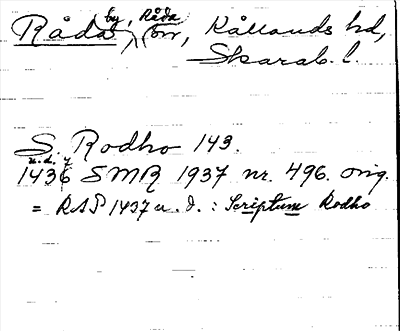 Råda by, Råda sn, Kållands hd,
Skarab. l.
S. Rodho 143.
u.d.
1436 SMR 1937 nr. 496. orig.
= RAP 1437 u. d. : Scriptum Rodho